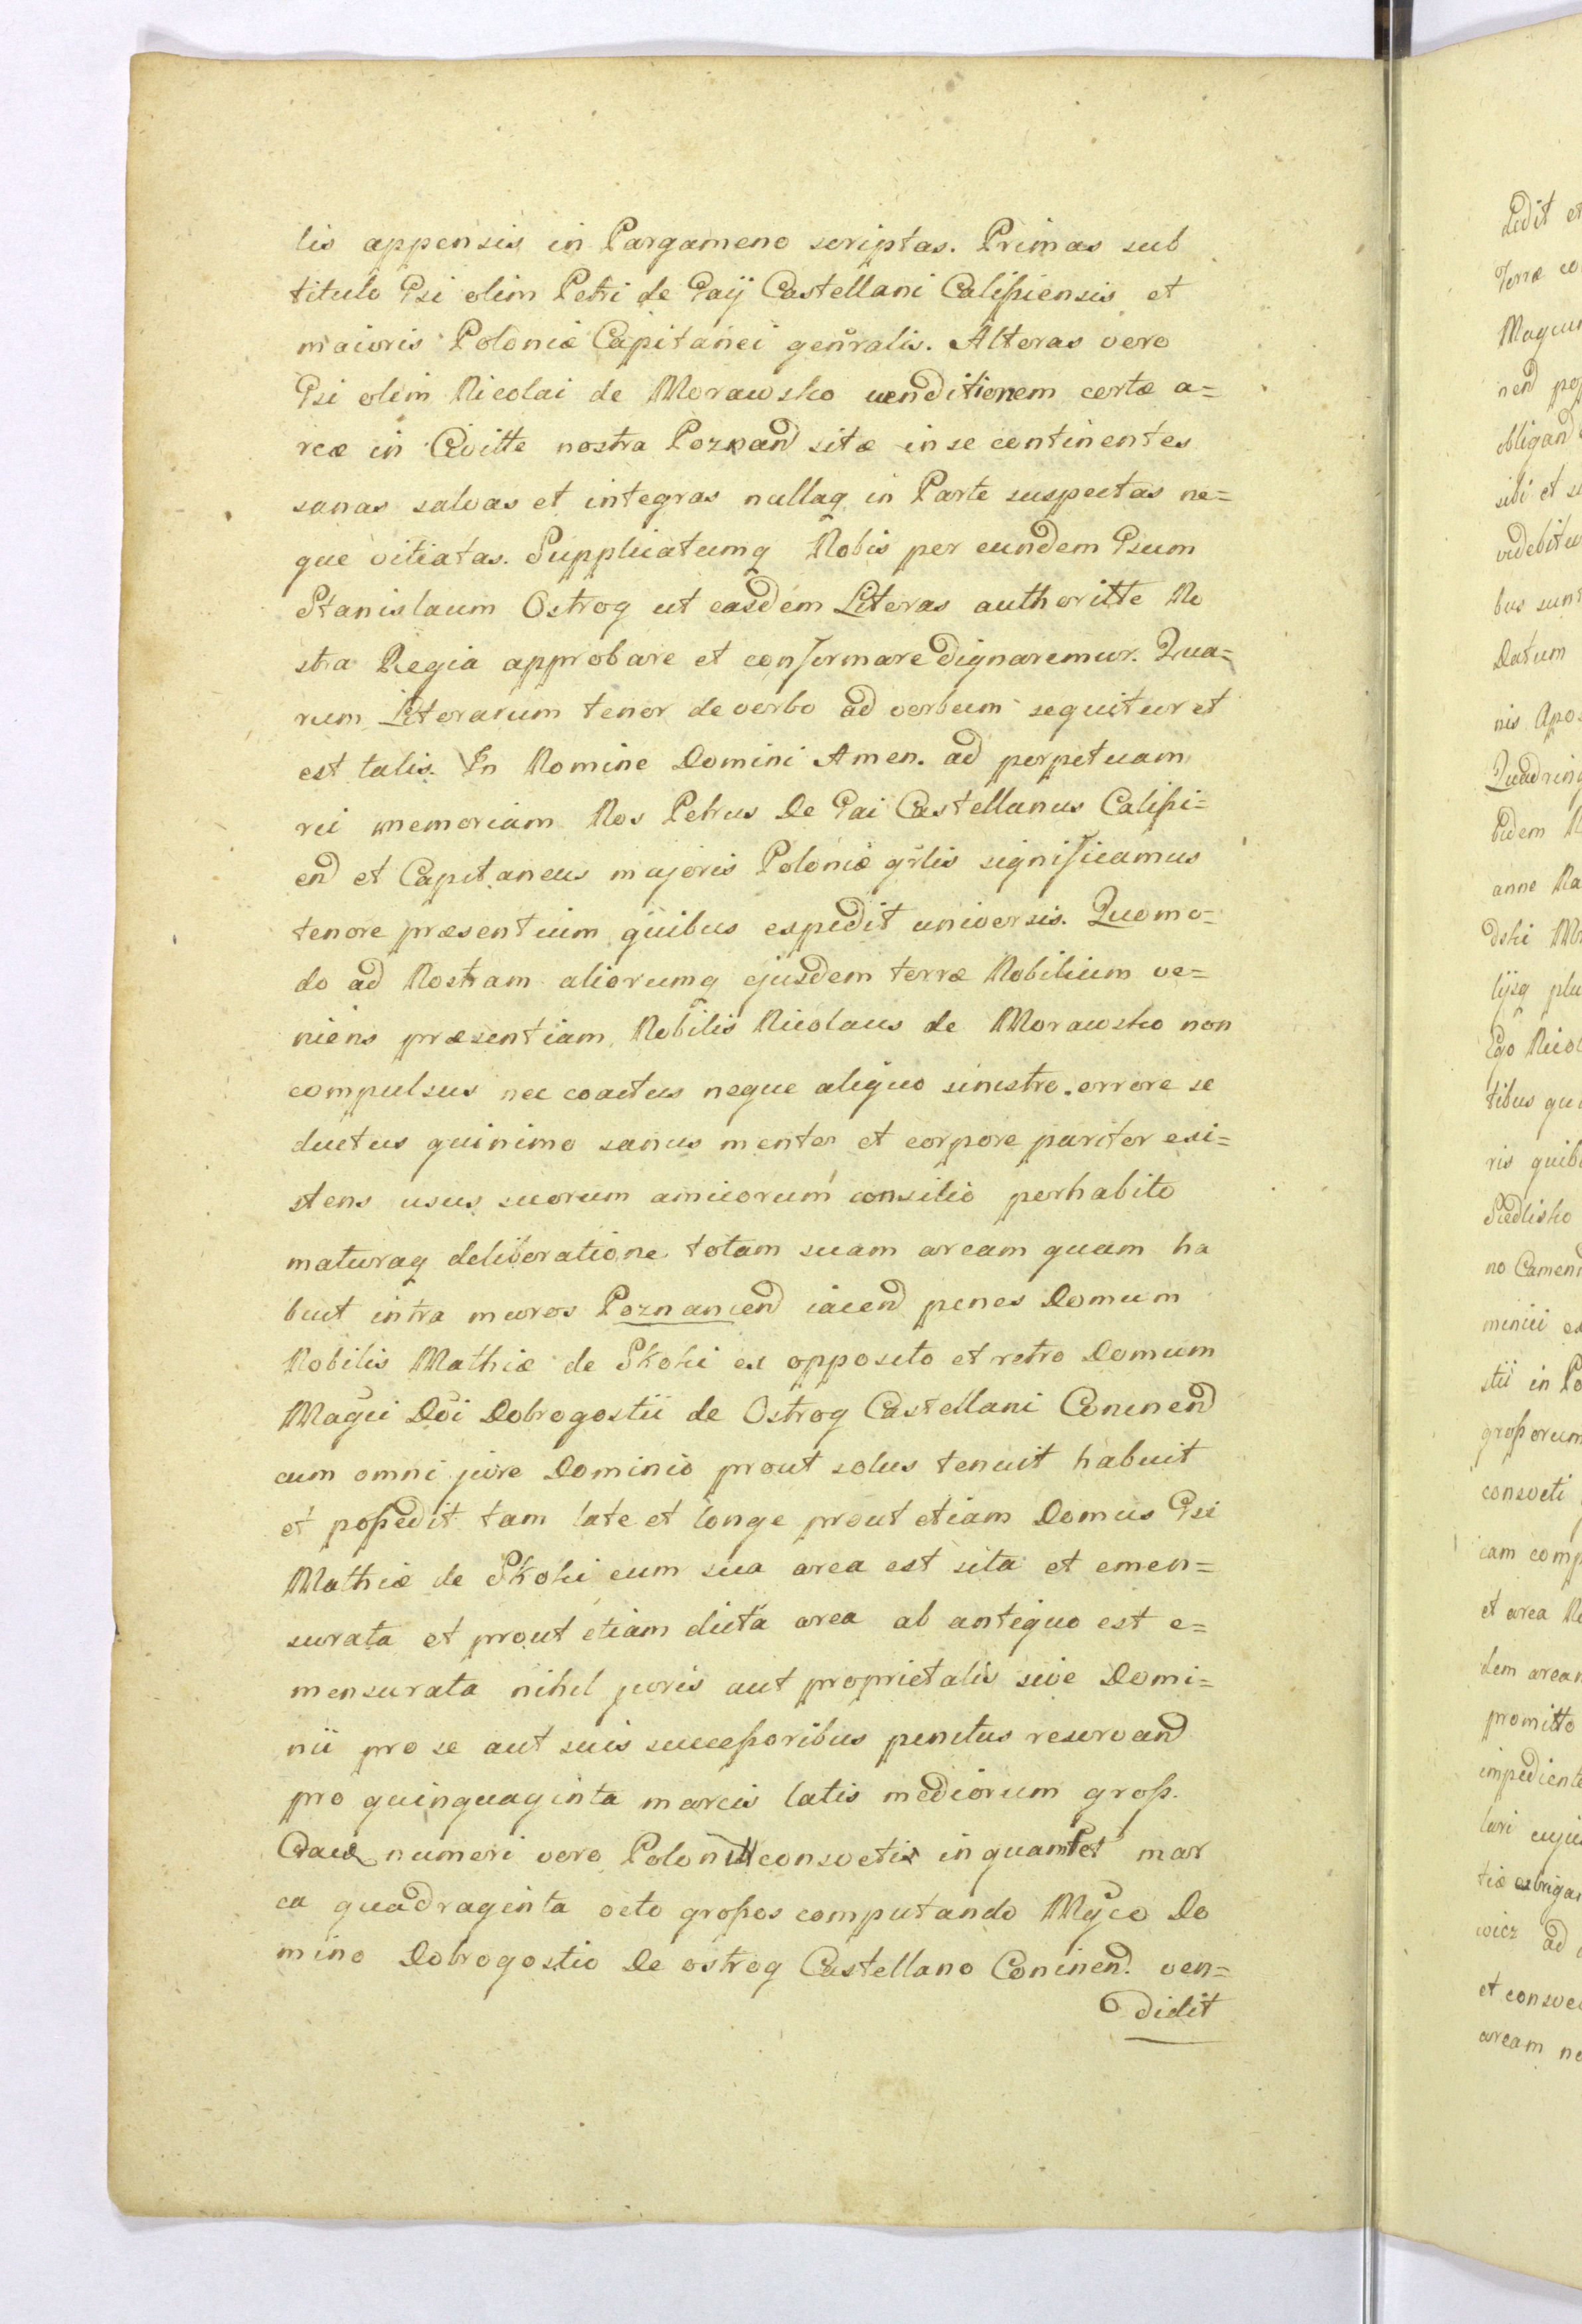 lis appensis in Pargameno scriptas. Primas sub
titulo Gsi olim Petri de Gaÿ Castellani Calißiensis et
maioris Poloniæ Capitanei genr̃alis. Alteras vero
Gsi olim Nicolai de Morawsko venditionem certæ a=
reæ in Civitte nostra Poznand sitæ in se continentes
sanas salvas et integras nullaq in Parte suspectas ne=
que vitiatas. Supplicatumq Nobis per eundem Gsum
Stanislaum Ostrog ut easdem Literas authoritte No
stra Regia approbare et confirmare dignaremur. Qua=
rum Literarum tenor de verbo ad verbum sequitur et
est talis. In Nomine Domini Amen. ad perpetuam
rei memoriam Nos Petrus De Gai Castellanus Calißi=
end et Capitaneus majoris Poloniæ gr̃lis significamus
tenore præsentium quibus expedit universis. Quomo=
do ad Nostram aliorumq ejusdem terræ Nobilium ve=
niens præsentiam Nobilis Nicolaus de Morawsko non
compulsus nec coactus neque aliquo sinistro errore se
ductus quinimo sanus mente et corpore pariter exi=
stens usus suorum amicorum consilio perhabito
maturaq deliberatione totam suam aream quam ha
buit intra muros Poznaniend iacend penes Domum
Nobilis Mathiæ de Skoki ex opposito et retro Domum
Magci Dñi Dobrogostii de Ostrog Castellani Coninend
cum omni jure Dominio prout solus tenuit habuit
et poßedit tam late et longe prout etiam Domus Gsi
Mathiæ de Skoki cum sua area est sita et emen=
surata et prout etiam dicta area ab antiquo est e=
mensurata nihil juris aut proprietatis sive Domi=
nii pro se aut suis succeßoribus penitus reservand
pro quinquaginta marcis latis mediorum groß.
numeri vero Polon consvetis in quamlet mar
ca quadraginta octo großos computando Mgco Do
mino Dobrogostio De ostrog Castellano Coninend. ven=
didit
Dedit et
Terræ co
nend
obligand
sibi et s
videbitu
bus sunt
Datum
nis Apos
Quadring
ibidem N
anne Na
dski Mo
lijsq plu
Ego Nicol
tibus qui
ris quib
Siedlisko
no Camen
minici
stii in Po
großorum
consveti
cam comp
et area No
dem arean
promitto
impediente
lari cuju
wicz ad
et consve
aream no